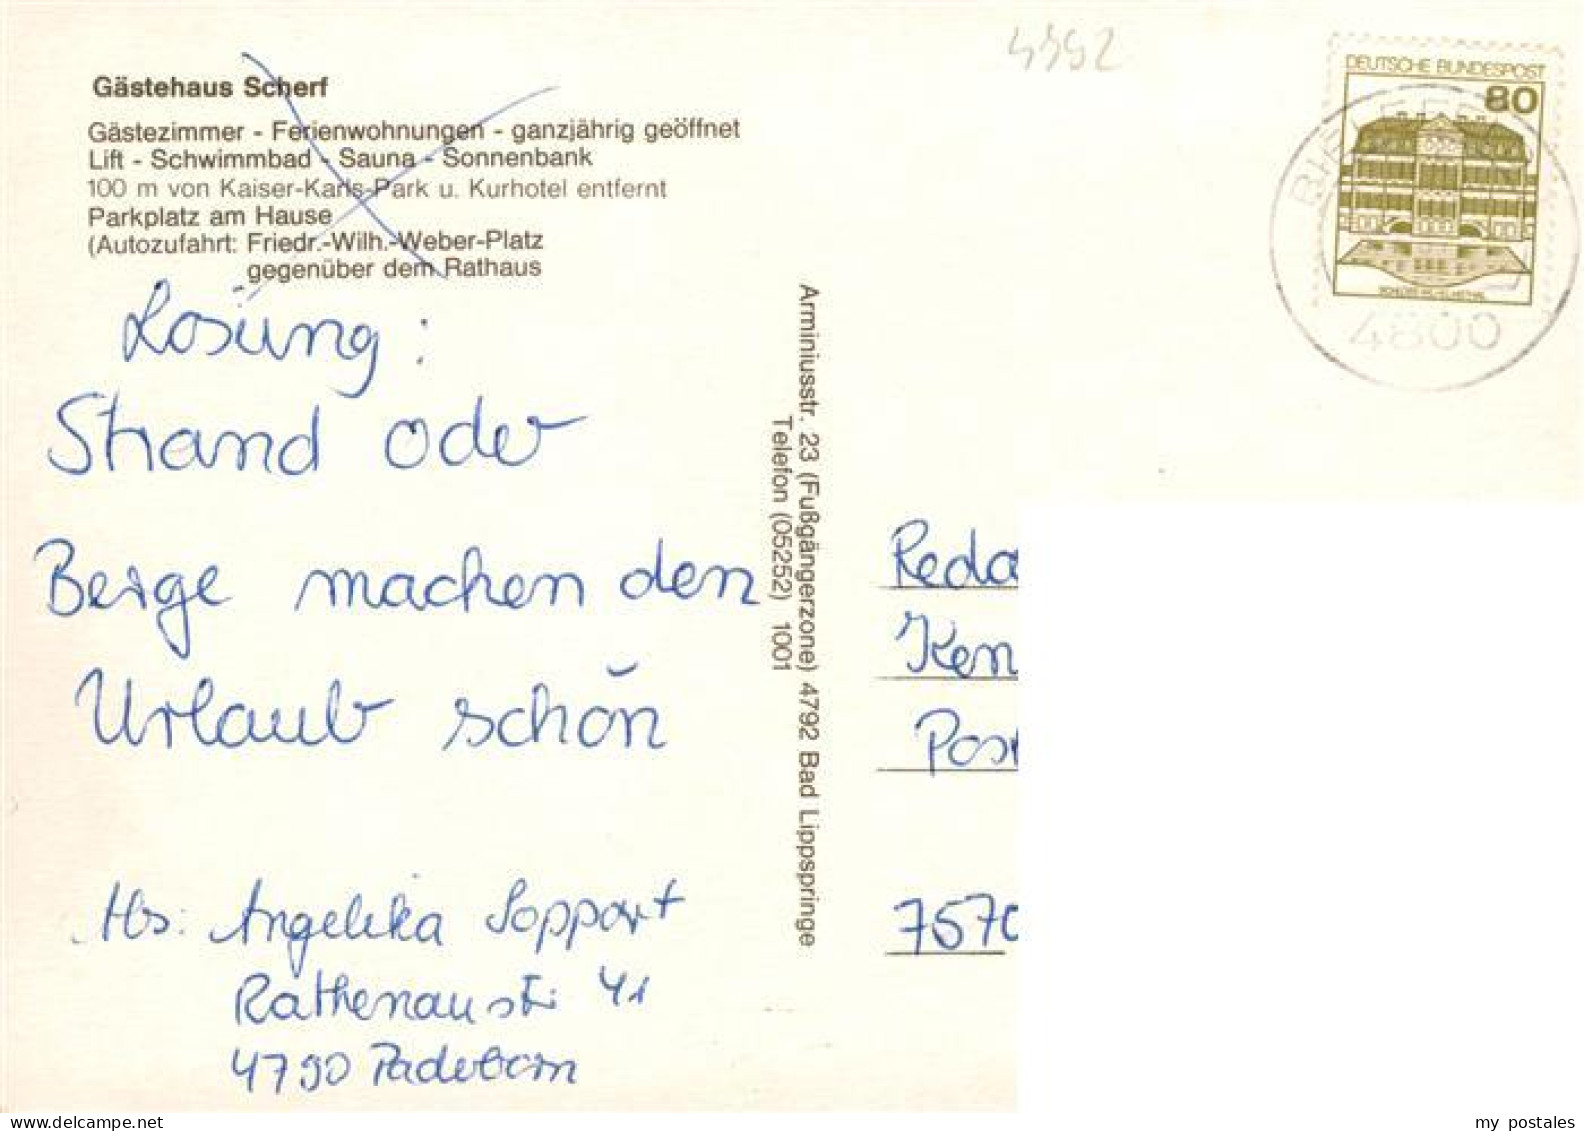 4792
Gästehaus Scherf
Gästezimmer - Ferienwohnungen - ganzjährig geöffnet
Lift - Schwimmbad - Sauna - Sonnenbank
100 m von Kaiser-Karls-Park u. Kurhotel entfernt
Parkplatz am Hause
(Autozufahrt: Friedr.-Wilh.-Weber-Platz
gegenüber dem Rathaus
Losüng:
Strand oder
Berge machen den
Urlaub schön
Abs: Angelika Soppart
Rathenaustr. 41
4790 Paderborn
Arminiusstr. 23 (Fußgängerzone) 4792 Bad Lippspringe
Telefon (05252) 1001
DEUTSCHE BUNDESPOST
80
4800
Reda
Ken
Pos
7570
my postales
www.delcampe.net